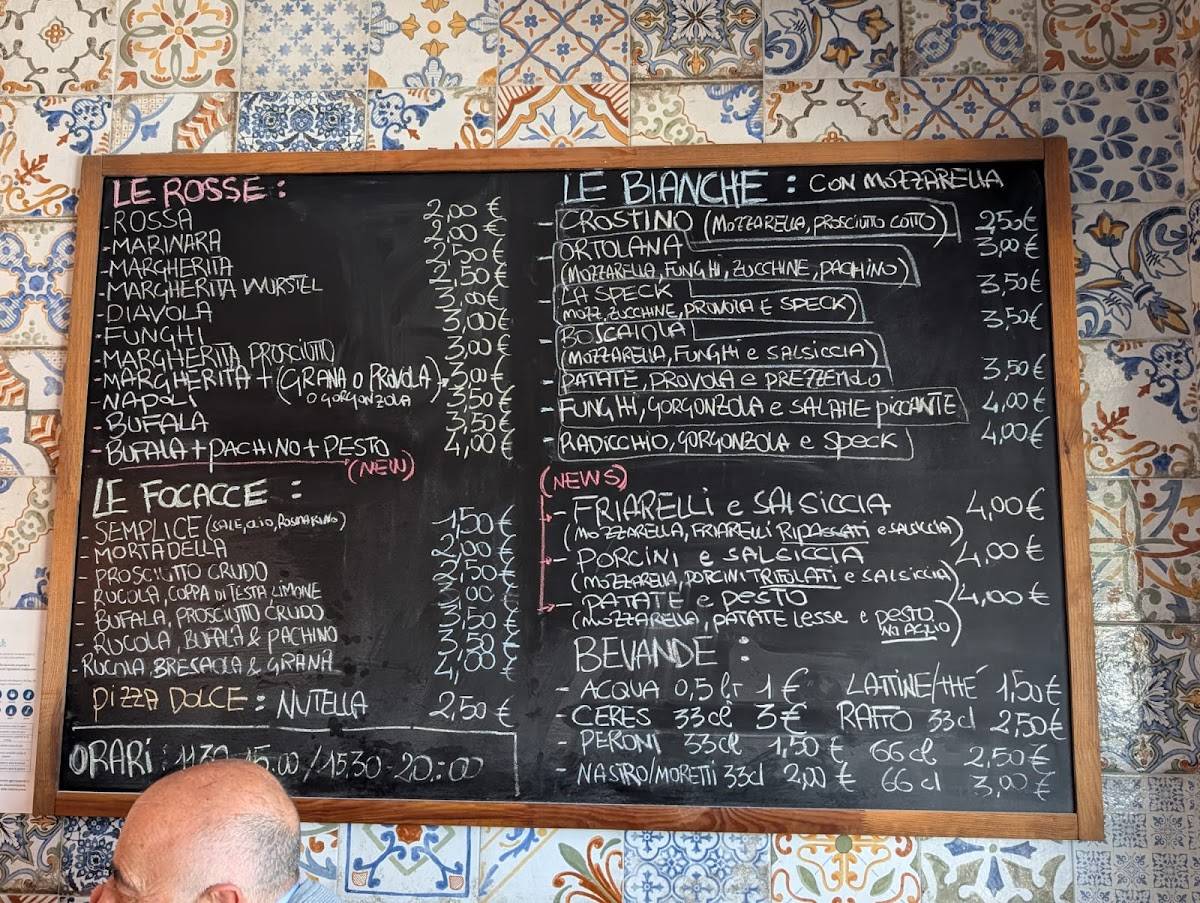 LE ROSSE :
- ROSSA 2,00 €
- MARINARA 2,00 €
- MARGHERITA 2,50 €
- MARGHERITA WURSTEL 2,50 €
- DIAVOLA 3,00 €
- FUNGHI 3,00 €
- MARGHERITA PROSCIUTTO 3,00 €
- MARGHERITA + (GRANA O PROVOLA) 3,00 €
O GORGONZOLA
- NAPOLI 3,50 €
- BUFALA 3,50 €
- BUFALA + PACHINO + PESTO 4,00 €
(NEW)
LE FOCACCE :
- SEMPLICE (SALE, OLIO, ROSMARINO) 1,50 €
- MORTADELLA 2,00 €
- PROSCIUTTO CRUDO 2,50 €
- RUCOLA, COPPA DI TESTA LIMONE 3,00 €
- BUFALA, PROSCIUTTO CRUDO 3,50 €
- RUCOLA, BUFALA & PACHINO 3,50 €
- RUCOLA, BRESAOLA & GRANA 4,00 €
PIZZA DOLCE : NUTELLA 2,50 €
ORARI : 11.30-15.00 / 15.30-20:00
LE BIANCHE : CON MOZZARELLA
- CROSTINO (MOZZARELLA, PROSCIUTTO COTTO) 2,50 €
- ORTOLANA 3,00 €
(MOZZARELLA, FUNGHI, ZUCCHINE, PACHINO)
- LA SPECK 3,50 €
MOZZ, ZUCCHINE, PROVOLA E SPECK)
- BOSCAIOLA 3,50 €
(MOZZARELLA, FUNGHI e SALSICCIA)
- PATATE, PROVOLA e PREZZEMOLO 3,50 €
- FUNGHI, GORGONZOLA e SALAME PICCANTE 4,00 €
- RADICCHIO, GORGONZOLA e SPECK 4,00 €
(NEWS)
- FRIARELLI e SALSICCIA 4,00 €
(MOZZARELLA, FRIARELLI RIPASSATI e SALSICCIA)
- PORCINI e SALSICCIA 4,00 €
(MOZZARELLA, PORCINI TRIFOLATI e SALSICCIA)
- PATATE e PESTO 4,00 €
(MOZZARELLA, PATATE LESSE e PESTO
NO AGLIO)
BEVANDE :
- ACQUA 0,5 lt 1 € LATTINE/THÉ 1,50 €
- CERES 33 cl 3 € RAFFO 33 cl 2,50 €
- PERONI 33 cl 1,50 € 66 cl 2,50 €
- NASTRO/MORETTI 33 cl 2,00 € 66 cl 3,00 €